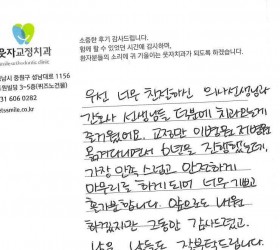 웃자교정치과
소중한 후기 감사드립니다.
함께 할 수 있었던 시간에 감사하며,
환자분들의 소리에 귀 기울이는 웃자치과가 되도록 하겠습니다.
남시 중원구 성남대로 1156
3~5층(퀴즈노건물)
31 606 0282
etssmile.co.kr
우선 너무 친절하신 의사선생님과
간호사 선생님들 덕분에 치료받는게
즐거웠어요. 교정만 이번년 째 병원
옮겨다니면서 6년을 진행했는데,
가장 만족스럽고 안전하게
마무리를 하게 되어 너무 기쁘고
즐거웠습니다. 앞으로도 내원
하겠지만 그동안 감사드렸고,
남은 잘부탁드립니다